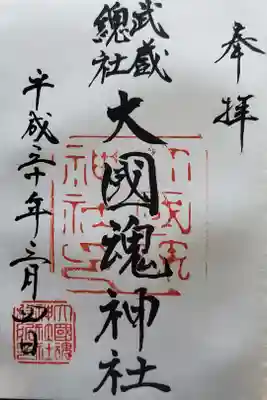 奉拝
武蔵
總社
大國魂神社
平成三十年三月四日